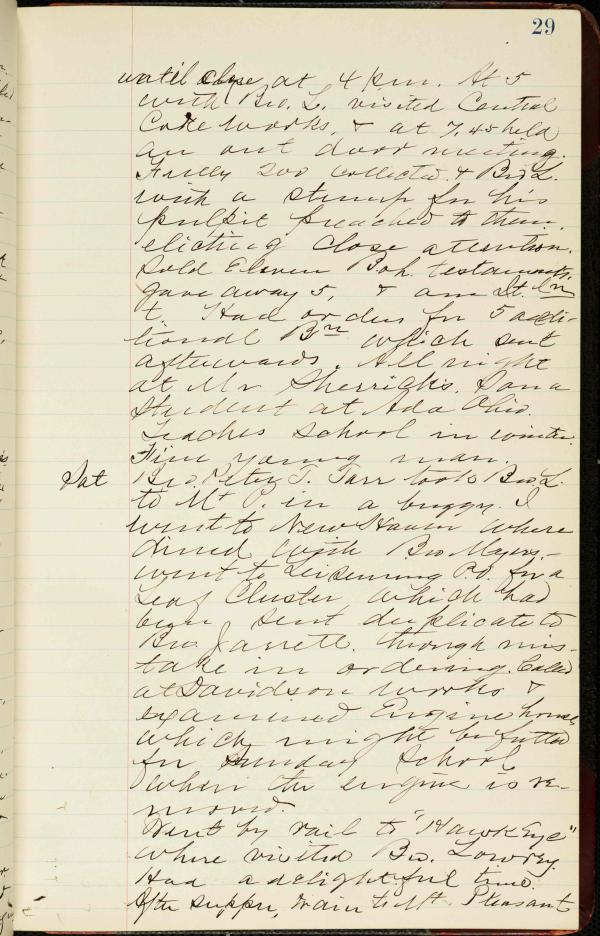 29
until close, at 4 p.m. At 5
with Bro. L. visited Central
Coke works, & at 7.45 held
an out door meeting.
Fully 200 collected, & Bro L.
with a stump for his
pulpit preached to them,
eliciting close attention.
Sold Eleven Boh. testaments.
gave away 5, & am
Had orders for 5 addi-
tional Bns which sent
afterwards. All night
at Mr Sherrick's. Son a
Student at Ada Ohio.
Teaches school in winter.
Fine young man.
Sat Bro. Peter T. Tarr took Bro. L.
to Mt P. in a buggy. I
went to New Haven where
dined with Bro Myers, -
went to Leisenring P.O. for a
Leaf Cluster which had
been sent duplicate to
Bro Jarrett. through mis-
take in ordering. Called
at Davidson works &
examined Engine house
which might be fitted
for Sunday School
when the engine is re-
moved.
Went by rail to "Hawkeye"
where visited Bro. Lowrey.
Had a delightful time.
After supper, train to Mt. Pleasant